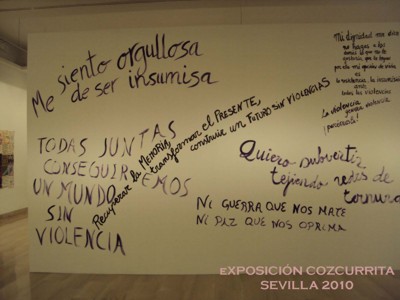 Me siento orgullosa
de ser insumisa
Mi dignidad me dice
no hagas a los
demás lo que no te
gustaría que te hagan
la violencia
genera violencia
TODAS JUNTAS
CONSEGUIREMOS
UN MUNDO
SIN
VIOLENCIA
Recuperar la MEMORIA,
transformar el PRESENTE,
construir un FUTURO SIN VIOLENCIAS
Quiero subvertir
tejiendo redes de
ternura
NI GUERRA QUE NOS MATE
NI PAZ QUE NOS OPRIMA
eXPOSICIÓN COZCURRITA
SEVILLA 2010